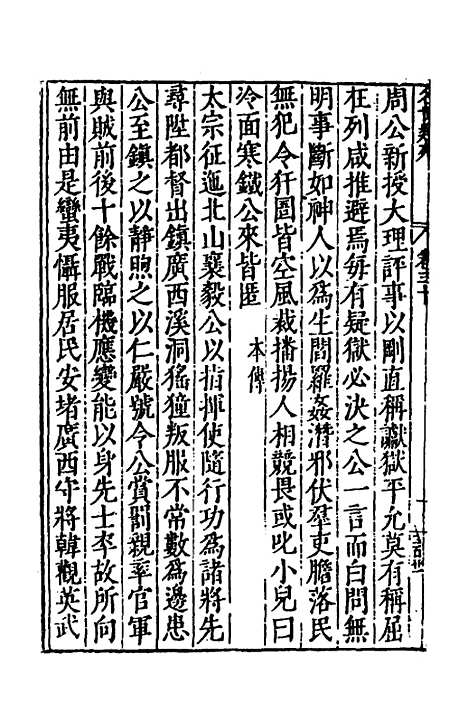 周公新授大理評事以剛直稱讞獄平允莫有稱屈
在列咸推避焉每有疑獄必決之公一言而白問無
明事斷如神人以爲生閻羅姦潛邪伏羣吏膽落民
無犯令犴圄皆空風裁播揚人相競畏或叱小兒曰
冷面寒鐵公來皆匿 本傳
太宗征迤北山襄毅公以指揮使隨行功爲諸將先
尋陞都督出鎮廣西溪洞猺獞叛服不常數爲邊患
公至鎮之以靜煦之以仁嚴號令公賞罰親率官軍
與賊前後十餘戰臨機應變能以身先士卒故所向
無前由是蠻夷懾服居民安堵廣西守將韓觀英武